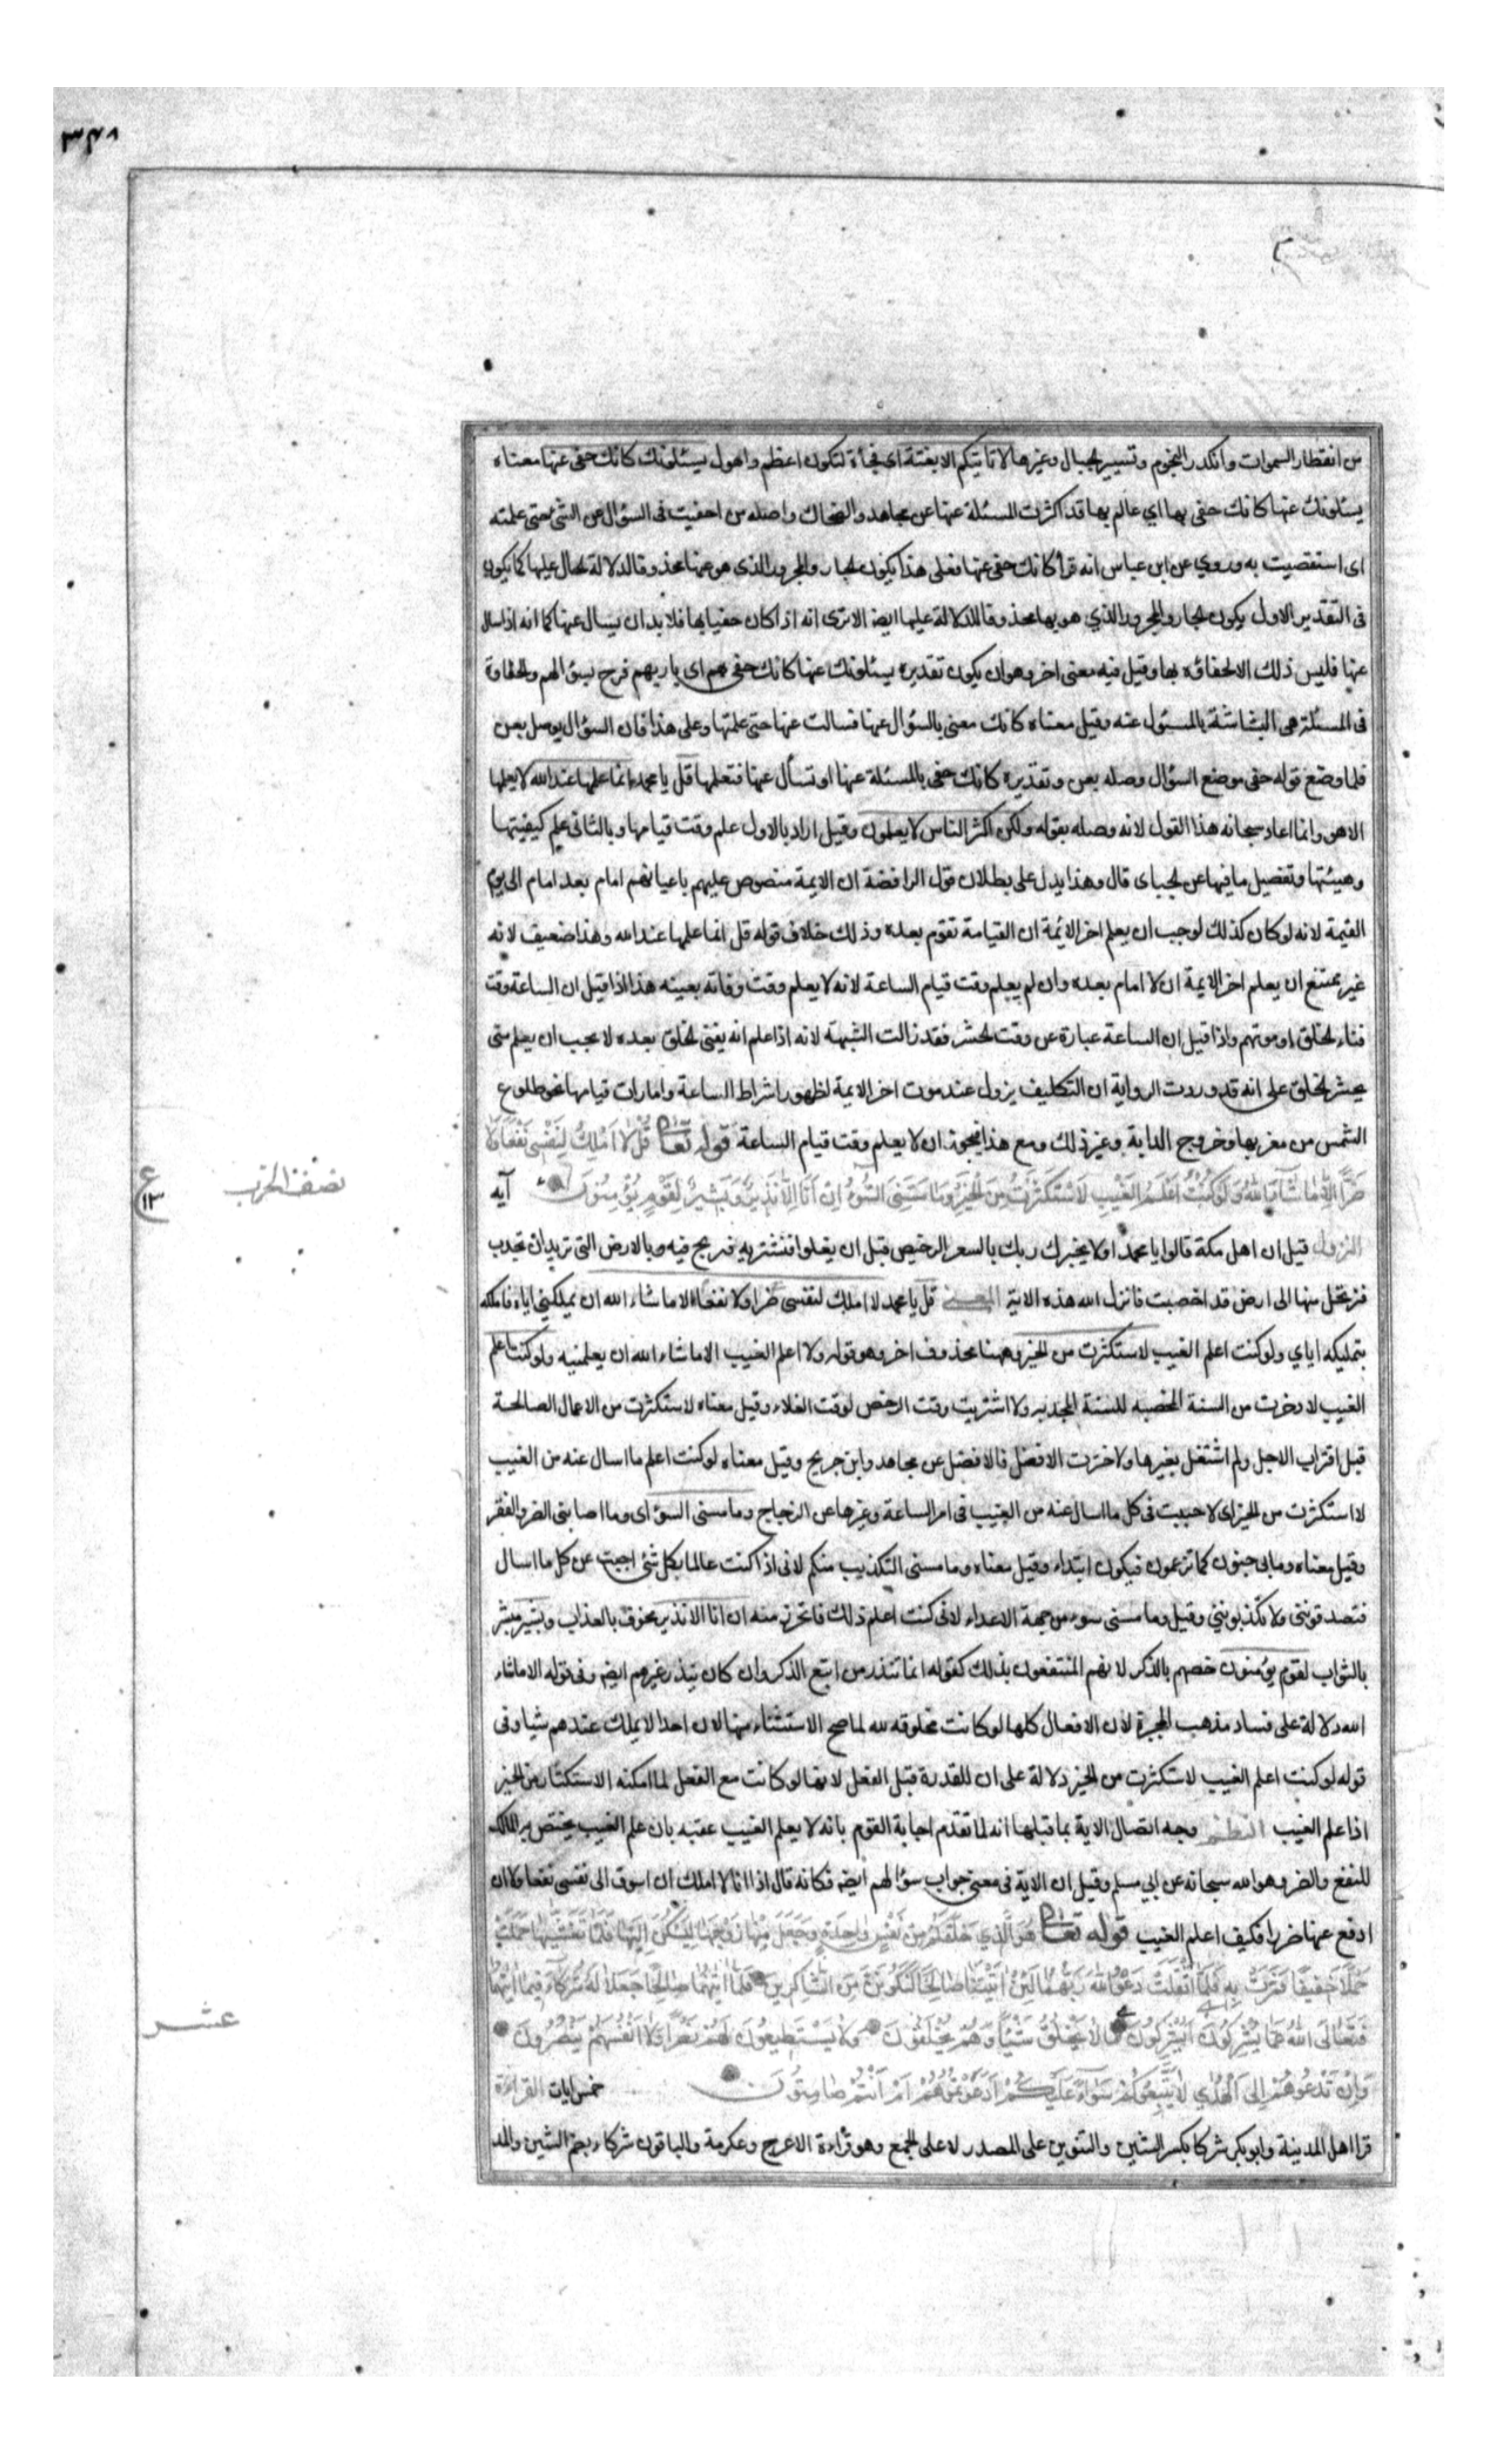 ٣٤٨
من انفطار السموات وانكدر النجوم وتسيير الجبال وغيرها لا تاتيكم الا بغتة اى فجأة لتكون اعظم واهول يسئلونك كانك حفى عنها معناه
يسئلونك عنها كانك حفى بها اي عالم بها قد اكثرت المسئلة عنها عن مجاهد والضحاك واصله من احفيت فى السؤال عن الشئ حتى علمته
اى استقصيت به وروي عن ابن عباس انه قرأ كانك حفى عنها فعلى هذا يكون الجار والمجرور الذى هو عنها محذوفا لدلالة الحال عليها كما يكون
فى التقدير الاول يكون الجار والمجرور الذي هو بها محذوفا للدلالة عليها ايضا الا ترى انه اذا كان حفيا بها فلا بد ان يسال عنها كما انه اذا سال
عنها فليس ذلك الا لحفاؤه بها وقيل فيه معنى اخر وهو ان يكون تقديره يسئلونك عنها كانك حفى بهم اى بار بهم فرح بسؤالهم والحفاوة
فى المسئلة هى البشاشة بالمسئول عنه وقيل معناه كانك معنى بالسؤال عنها فسالت عنها حتى علمتها وعلى هذا فان السؤال يوصل بعن
فلما وضع قوله حفى موضع السؤال وصله بعن وتقديره كانك حفى بالمسئلة عنها او تسأل عنها فتعلمها قل يا محمد انما علمها عند الله لا يعلمها
الا هو وانما اعاد سبحانه هذا القول لانه وصله بقوله ولكن اكثر الناس لا يعلمون وقيل اراد بالاول علم وقت قيامها وبالثانى علم كيفيتها
وهيئتها وتفصيل ما فيها عن الجبائى قال وهذا يدل على بطلان قول الرافضة ان الايمة منصوص عليهم باعيانهم امام بعد امام الى يوم
القيمة لانه لو كان كذلك لوجب ان يعلم اخر الائمة ان القيامة تقوم بعده وذلك خلاف قوله قل انما علمها عند الله وهذا ضعيف لانه
غير ممتنع ان يعلم اخر الايمة ان لا امام بعده وان لم يعلم وقت قيام الساعة لانه لا يعلم وقت وفاته بعينه هذا اذا قيل ان الساعة وقت
فناء الخلق او موتهم واذا قيل ان الساعة عبارة عن وقت الحشر فقد زالت الشبهة لانه اذا علم انه يفنى الخلق بعده لا يجب ان يعلم متى
يحشر الخلق على انه قد وردت الرواية ان التكليف يزول عند موت اخر الايمة لظهور اشراط الساعة وامارات قيامها نحو طلوع
الشمس من مغربها وخروج الدابة وغير ذلك ومع هذا فيجوز ان لا يعلم وقت قيام الساعة قوله تعا قُلْ لَا اَمْلِكُ لِنَفْسِى نَفْعًا وَلَا
ضَرًّا اِلَّا مَا شَآءَ اللهُ وَلَوْ كُنْتُ اَعْلَمُ الْغَيْبِ لَاسْتَكْثَرْتُ مِنَ الْخَيْرِ وَمَا مَسَّنِىَ السُّوءُ اِنْ اَنَا اِلَّا نَذِيرٌ وَبَشِيرٌ لِقَوْمٍ يُؤْمِنُونَ آيه
نصف الحزب
ع ١٣
النزول قيل ان اهل مكة قالوا يا محمد اولا يخبرك ربك بالسعر الرخيص قبل ان يغلوا فنشتريه فنربح فيه وبالارض التى تريد ان تجدب
فنرتحل منها الى ارض قد اخصبت فانزل الله هذه الاية المعنى قل يا محمد لا املك لنفسى ضرا ولا نفعا الا ما شاء الله ان يملكنى اياه فاملكه
بتمليكه اياي ولو كنت اعلم الغيب لاستكثرت من الخير وههنا محذوف اخر وهو قوله ولا اعلم الغيب الا ما شاء الله ان يعلمنيه ولو كنت اعلم
الغيب لادخرت من السنة المخصبه للسنة المجدبه ولا اشتريت وقت الرخص لوقت الغلاء وقيل معناه لاستكثرت من الاعمال الصالحة
قبل اقتراب الاجل ولم اشتغل بغيرها ولاخترت الافضل فالافضل عن مجاهد وابن جريج وقيل معناه لو كنت اعلم ما اسال عنه من الغيب
لا استكثرت من الخير اى لاجبت فى كل ما اسال عنه من الغيب فى امر الساعة وغيرها عن الزجاج وما مسنى السوء اى وما اصابنى الضر والفقر
وقيل معناه وما بى جنون كما تزعمون فيكون ابتداء وقيل معناه وما مسنى التكذيب منكم لانى اذا كنت عالما بكل شئ اجيب عن كل ما اسال
فتصدقوننى ولا تكذبوننى وقيل وما مسنى سوء من جهة الاعداء لانى كنت اعلم ذلك فاتحرز منه ان انا الا نذير مخوف بالعذاب وبشير مبشر
بالثواب لقوم يؤمنون خصهم بالذكر لانهم المنتفعون بذلك كقوله انما تنذر من اتبع الذكر وان كان ينذر غيرهم ايضا وفى قوله الا ما شاء
الله دلالة على فساد مذهب المجبرة لان الافعال كلها لو كانت مخلوقه لله لما صح الاستثناء منها لان احدا لا يملك عندهم شيا وفى
قوله لو كنت اعلم الغيب لاستكثرت من الخير دلالة على ان القدرة قبل الفعل لانها لو كانت مع الفعل لما امكنه الاستكثار من الخير
اذا علم الغيب النظم وجه اتصال الاية بما قبلها انه لما تقدم اجابة القوم بانه لا يعلم الغيب عقبه بان علم الغيب يختص به المالك
للنفع والضر وهو الله سبحانه عن ابي مسلم وقيل ان الاية فى معنى جواب سؤالهم ايضا فكانه قال اذا انا لا املك ان اسوق الى نفسى نفعا ولا ان
ادفع عنها ضرا فكيف اعلم الغيب قوله تعا هُوَ الَّذِي خَلَقَكُمْ مِنْ نَفْسٍ وَاحِدَةٍ وَجَعَلَ مِنْهَا زَوْجَهَا لِيَسْكُنَ اِلَيْهَا فَلَمَّا تَغَشَّيهَا حَمَلَتْ
حَمْلًا خَفِيفًا فَمَرَّتْ بِهِ فَلَمَّا اَثْقَلَتْ دَعَوَا اللهَ رَبَّهُمَا لَئِنْ اٰتَيْتَنَا صَالِحًا لَنَكُونَنَّ مِنَ الشَّاكِرِينَ فَلَمَّا اٰتٰيهُمَا صَالِحًا جَعَلَا لَهُ شُرَكَآءَ فِيمَا اٰتٰيهُمَا
فَتَعَالَى اللهُ عَمَّا يُشْرِكُونَ اَيُشْرِكُونَ مَا لَا يَخْلُقُ شَيْئًا وَهُمْ يُخْلَقُونَ وَلَا يَسْتَطِيعُونَ لَهُمْ نَصْرًا وَلَا اَنْفُسَهُمْ يَنْصُرُونَ
عشر
وَاِنْ تَدْعُوهُمْ اِلَى الْهُدٰي لَا يَتَّبِعُوكُمْ سَوَآءٌ عَلَيْكُمْ اَدَعَوْتُمُوهُمْ اَمْ اَنْتُمْ صَامِتُونَ خمس ايات القراءة
قرا اهل المدينة وابو بكر شركا بكسر الشين والتنوين على المصدر لا على الجمع وهو قراءة الاعرج وعكرمة والباقون شركاء بضم الشين والمد